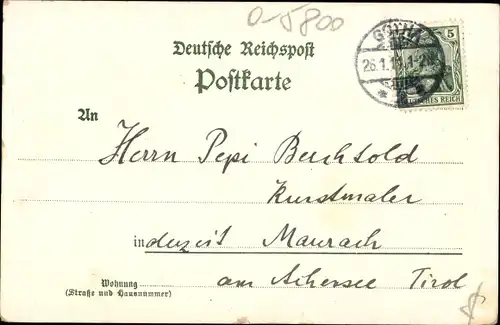 0-5800
Deutsche Reichspost
Postkarte
GOTHA
26.1.
5
DEUTSCHES REICH
An
Herrn Pepi Berchtold
Kunstmaler
in derzeit Maurach
am Achensee Tirol
Wohnung
(Straße und Hausnummer)